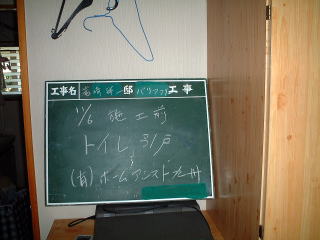 工事名 邸 バリアフリー 工事
11/6 施工前
トイレ 引戸
(有) ホームアシスト九州